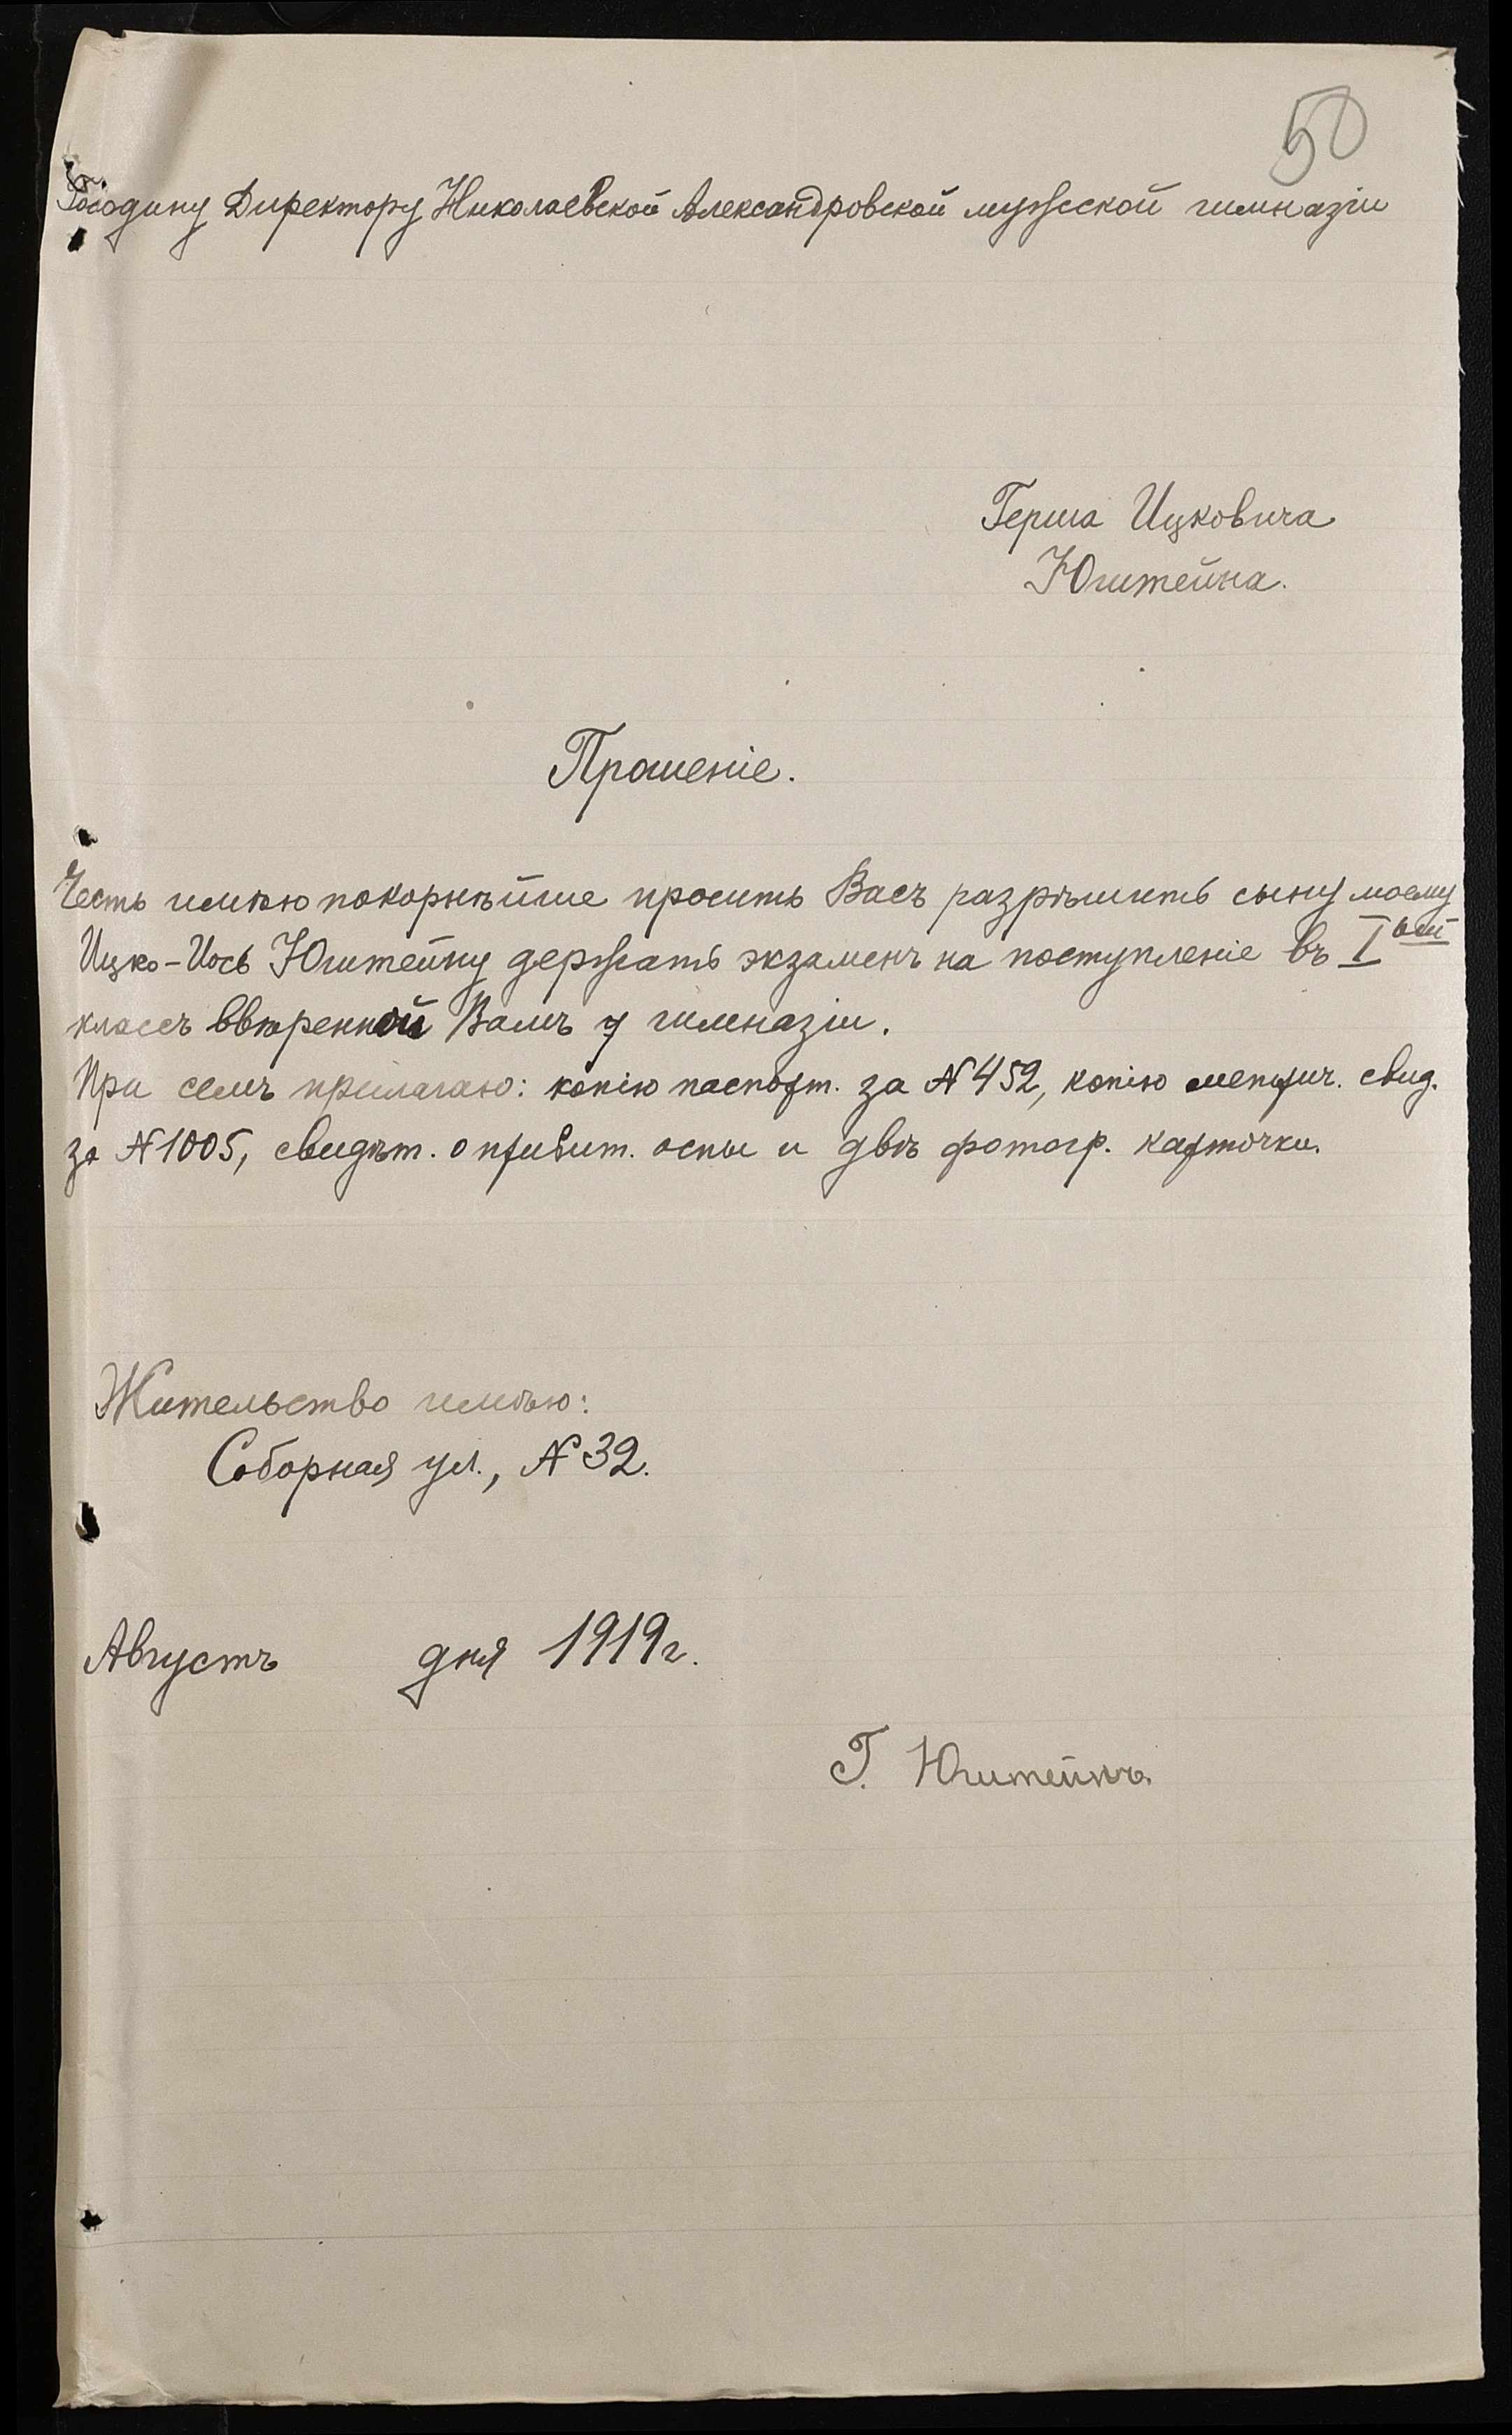 50
Господину Директору Николаевской Александровской мужской гимназіи
Герша Ицковича
Юштейна.
Прошеніе.
Честь имѣю покорнѣйше просить Васъ разрѣшить сыну моему
Ицко-Іось Юштейну держать экзаменъ на поступленіе въ I ый
классъ ввѣренной Вамъ гимназіи.
При семъ прилагаю: копію паспорт. за № 452, копію метрич. свид.
за № 1005, свидѣт. о привит. оспы и двѣ фотогр. карточки.
Жительство имѣю:
Соборная ул., № 32.
Августъ дня 1919 г.
Г. Юштейнъ.